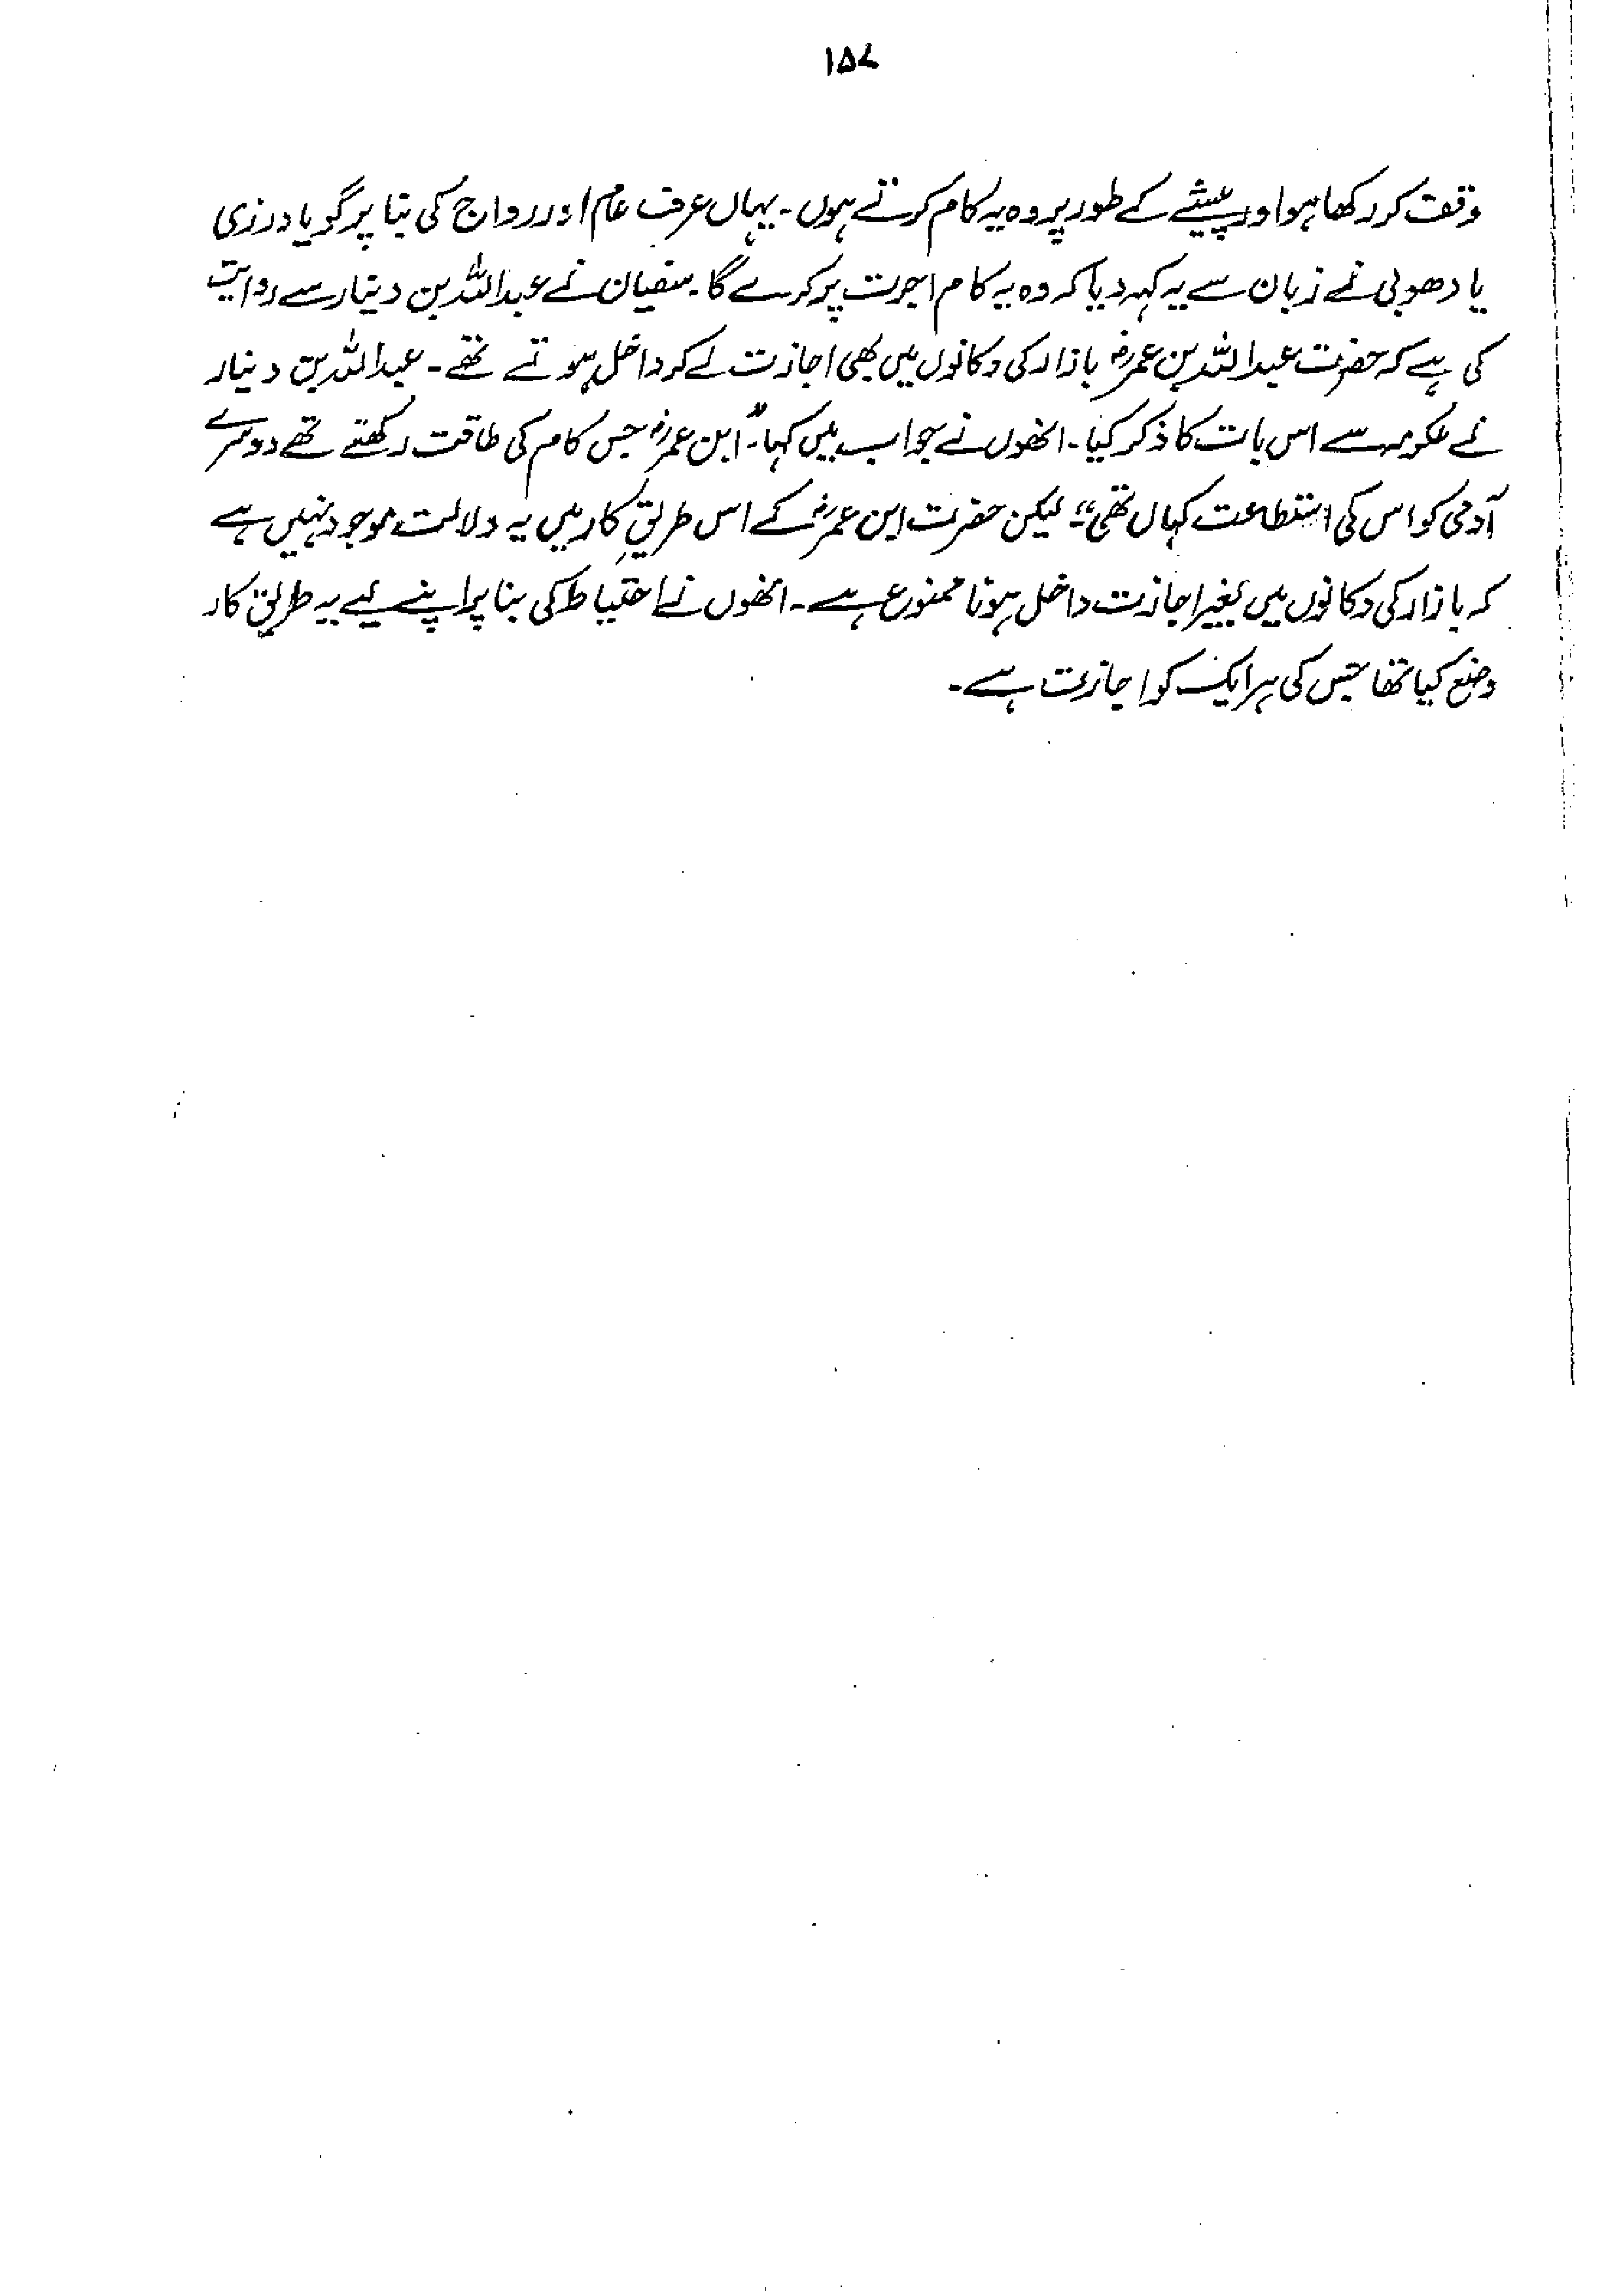 ۱۵۷
وقف کر رکھا ہو اور پیشے کے طور پر وہ یہ کام کرتے ہوں۔ یہاں عرف عام اور رواج کی بنا پر گویا درزی
یا دھوبی نے زبان سے یہ کہہ دیا کہ وہ یہ کام اجرت پر کرے گا۔ سفیان نے عبداللہ بن دینار سے روایت
کی ہے کہ حضرت عبداللہ بن عمرؓ بازار کی دکانوں میں بھی اجازت لے کر داخل ہوتے تھے۔ عبداللہ بن دینار
نے عکرمہ سے اس بات کا ذکر کیا۔ انھوں نے جواب میں کہا۔ "ابن عمرؓ جس کام کی طاقت رکھتے تھے دوسرے
آدمی کو اس کی استطاعت کہاں تھی"۔ لیکن حضرت ابن عمرؓ کے اس طریقِ کار میں یہ دلالت موجود نہیں ہے
کہ بازار کی دکانوں میں بغیر اجازت داخل ہونا ممنوع ہے۔ انھوں نے احتیاط کی بنا پر اپنے لیے یہ طریق کار
وضع کیا تھا جس کی ہر ایک کو اجازت ہے۔